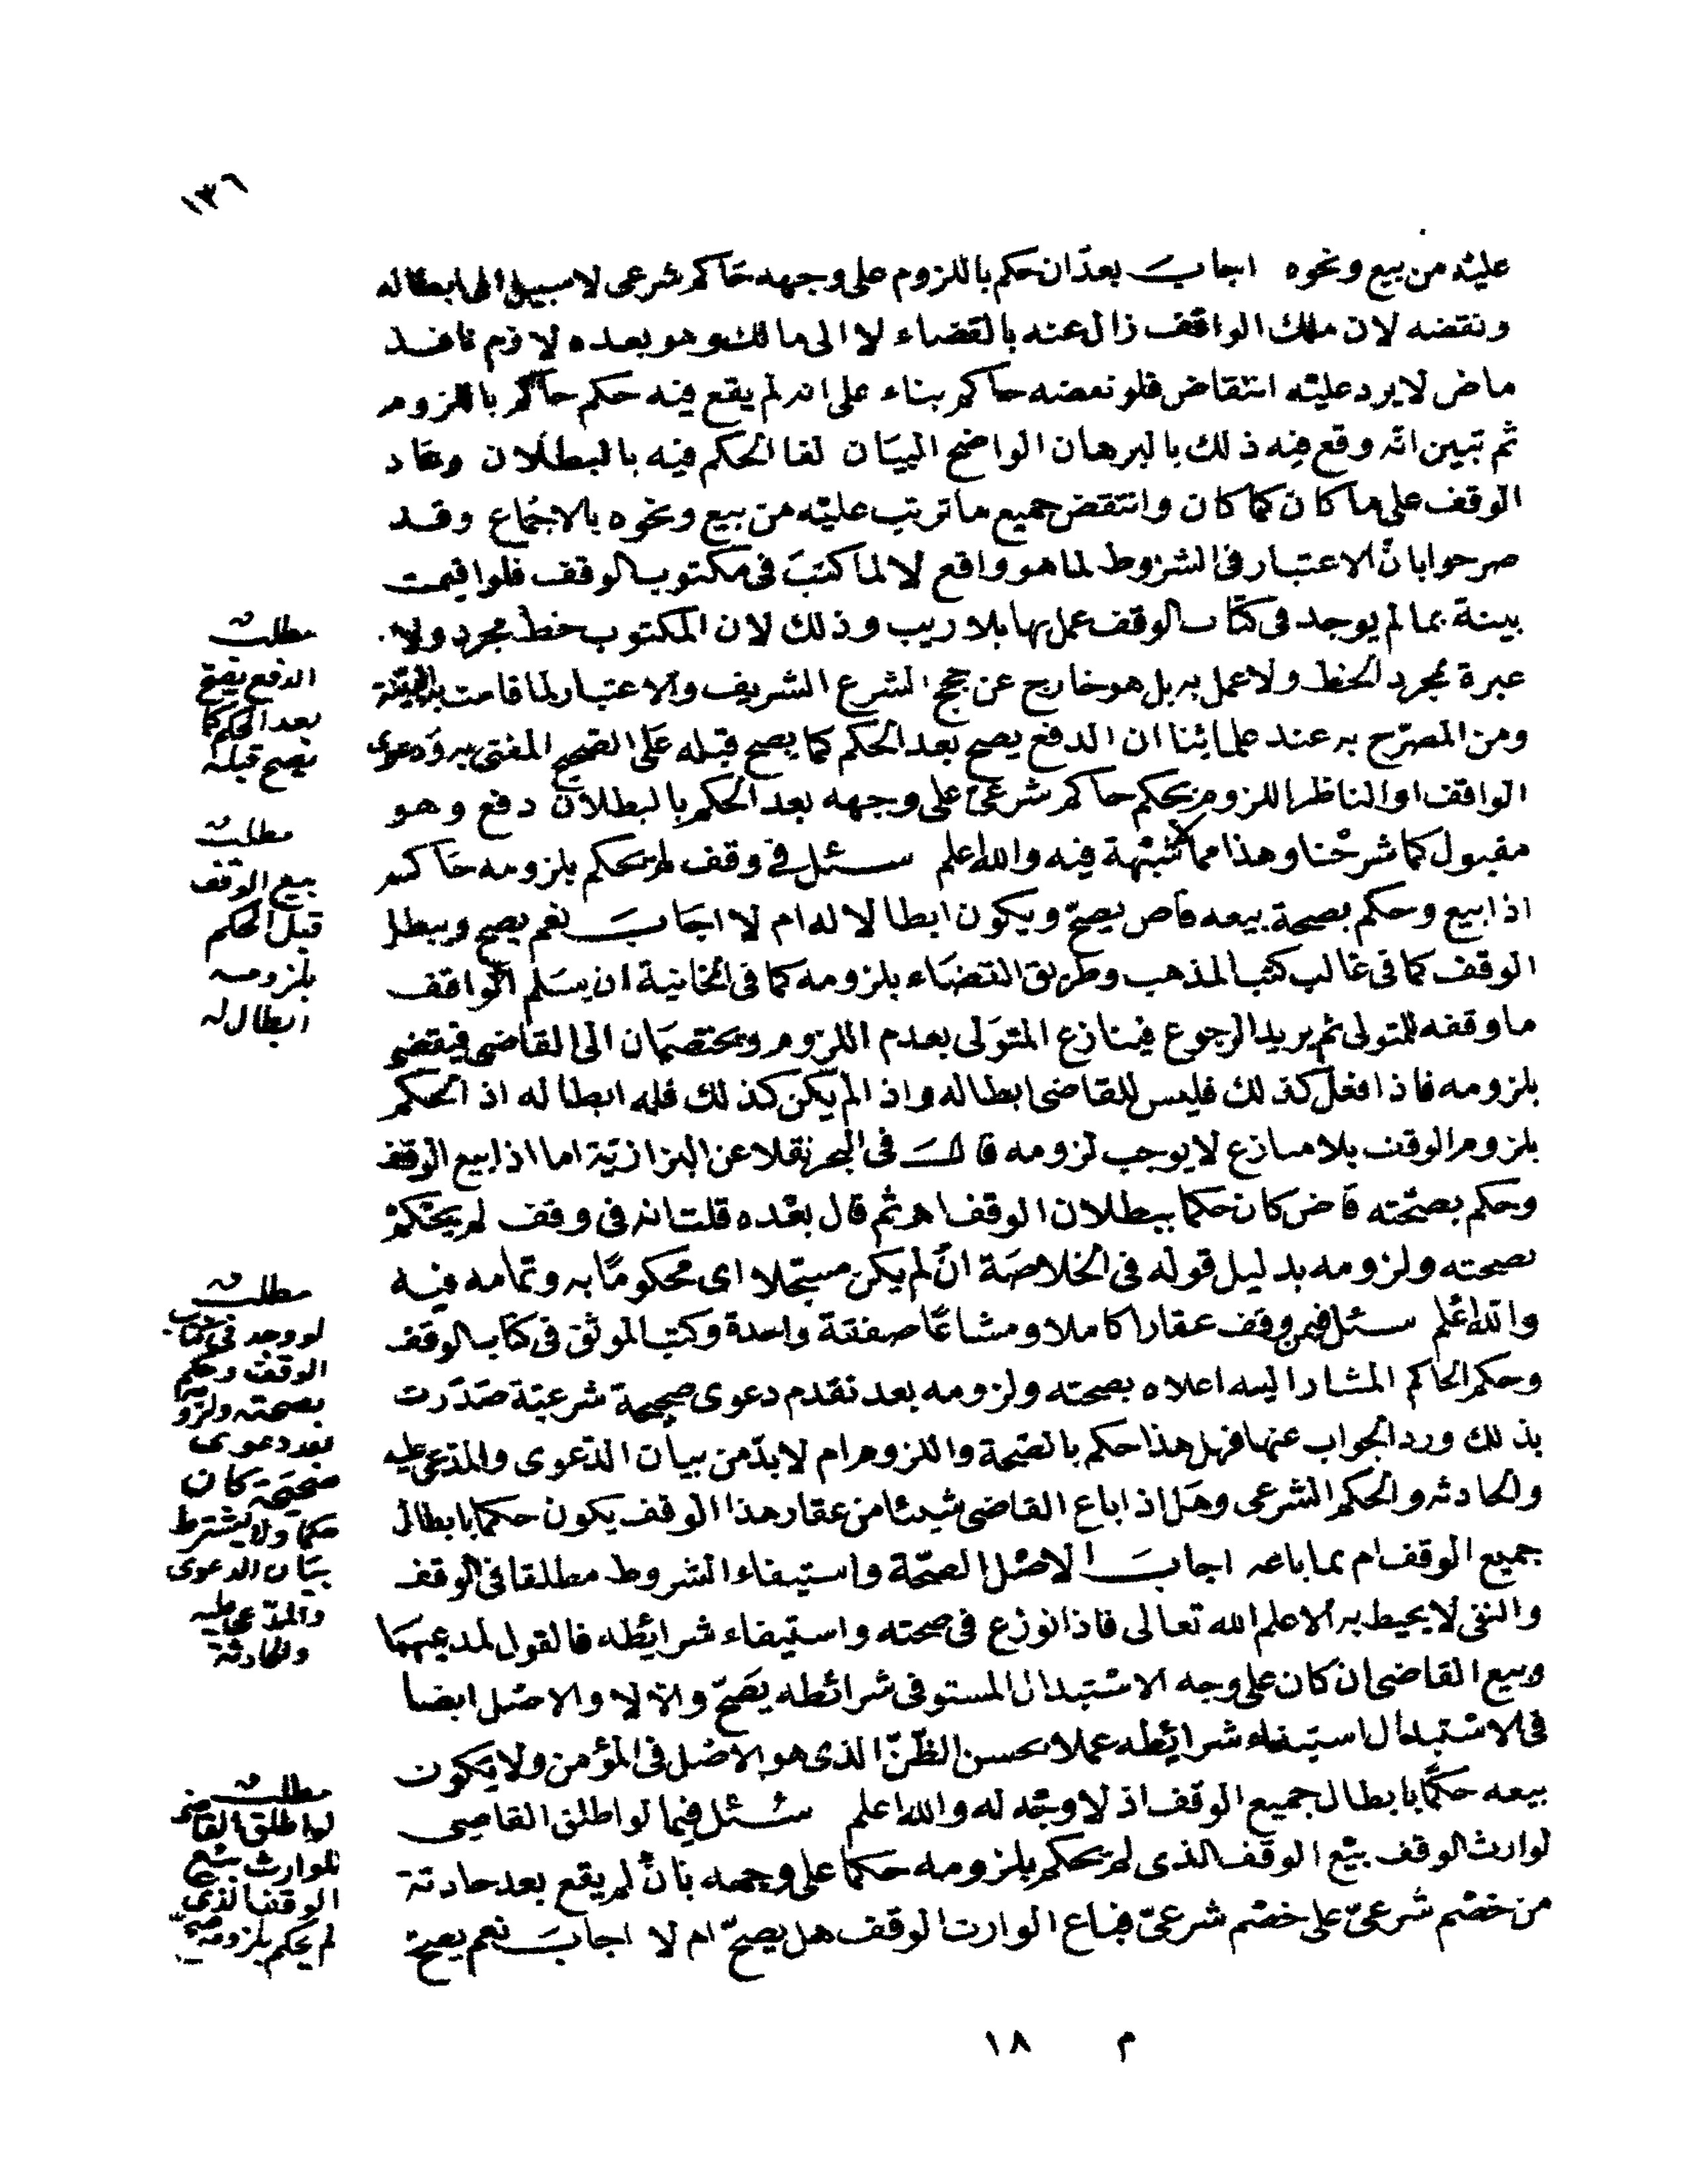 ١٣٦
عليه من بيع ونحوه اجاب بعد ان حكم باللزوم على وجهه حاكم شرعى لا سبيل الى ابطاله
ونقضه لان ملك الواقف زال عنه بالقضاء لا الى مالك وهو بعده لازم نافذ
ماض لا يرد عليه انتقاض فلو نقضه حاكم بناء على انه لم يقع فيه حكم حاكم باللزوم
ثم تبين انه وقع فيه ذلك بالبرهان الواضح البيان لغا الحكم فيه بالبطلان وعاد
الوقف على ما كان كما كان وانتقض جميع ما ترتب عليه من بيع ونحوه بالاجماع وقد
صرحوا بان الاعتبار فى الشروط لما هو واقع لا لما كتب فى مكتوب الوقف فلو اقيمت
بينة بما لم يوجد فى كتاب الوقف عمل بها بلا ريب وذلك لان المكتوب خط مجرد ولا
عبرة بمجرد الخط ولا عمل به بل هو خارج عن حجج الشرع الشريف والاعتبار لما قامت به البينة
ومن المصرح به عند علمائنا ان الدفع يصح بعد الحكم كما يصح قبله على الصحيح المفتى به ودعوى
الواقف او الناظر اللزوم بحكم حاكم شرعى على وجهه بعد الحكم بالبطلان دفع وهو
مقبول كما شرحنا وهذا مما لا شبهة فيه والله اعلم سئل فى وقف لم يحكم بلزومه حاكم
اذا بيع وحكم بصحة بيعه قاض يصح ويكون ابطالا له ام لا اجاب نعم يصح ويبطل
الوقف كما فى غالب كتب المذهب وطريق القضاء بلزومه كما فى الخانية ان يسلم الواقف
ما وقفه للمتولى ثم يريد الرجوع فينازع المتولى بعدم اللزوم ويختصمان الى القاضى فيقضى
بلزومه فاذا فعل كذلك فليس للقاضى ابطاله واذا لم يكن كذلك فله ابطاله اذ الحكم
بلزوم الوقف بلا منازع لا يوجب لزومه قال فى البحر نقلا عن البزازية اما اذا بيع الوقف
وحكم بصحته قاض كان حكما ببطلان الوقف اهـ ثم قال بعده قلت انه فى وقف لم يحكم
بصحته ولزومه بدليل قوله فى الخلاصة ان لم يكن مسجلا اى محكوما به وتمامه فيه
والله اعلم سئل فيمن وقف عقارا كاملا ومشاعا صفقة واحدة وكتب الموثق فى كتاب الوقف
وحكم الحاكم المشار اليه اعلاه بصحته ولزومه بعد تقدم دعوى صحيحة شرعية صدرت
بذلك ورد الجواب عنها فهل هذا حكم بالصحة واللزوم ام لا بد من بيان الدعوى والمدعى عليه
والحادثه والحكم الشرعى وهل اذا باع القاضى شيئا من عقار هذا الوقف يكون حكما بابطال
جميع الوقف ام بما باعه اجاب الاصل الصحة واستيفاء الشروط مطلقا فى الوقف
والنفى لا يحيط به الا علم الله تعالى فاذا نوزع فى صحته واستيفاء شرائطه فالقول لمدعيهما
وبيع القاضى ان كان على وجه الاستبدال المستوفى شرائطه يصح والا لا والاصل ايضا
فى الاستبدال استيفاء شرائطه عملا بحسن الظن الذى هو الاصل فى المؤمن ولا يكون
بيعه حكما بابطال جميع الوقف اذ لا وجه له والله اعلم سئل فيما لو اطلق القاضى
لوارث الوقف بيع الوقف الذى لم يحكم بلزومه حكما على وجهه بان لم يقع بعد حادثة
من خصم شرعى على خصم شرعى فباع الوارث الوقف هل يصح ام لا اجاب نعم يصح
مطلب
الدفع يصح
بعد الحكم كما
يصح قبله
مطلب
بيع الوقف
قبل الحكم
بلزومه
ابطال له
مطلب
لو وجد فى كتاب
الوقف وحكم
بصحته ولزومه
بعد دعوى
صحيحة كان
حكما ولا يشترط
بيان الدعوى
والمدعى عليه
والحادثة
مطلب
لو اطلق القاضى
للوارث بيع
الوقف الذى
لم يحكم بلزومه صح
م ١٨